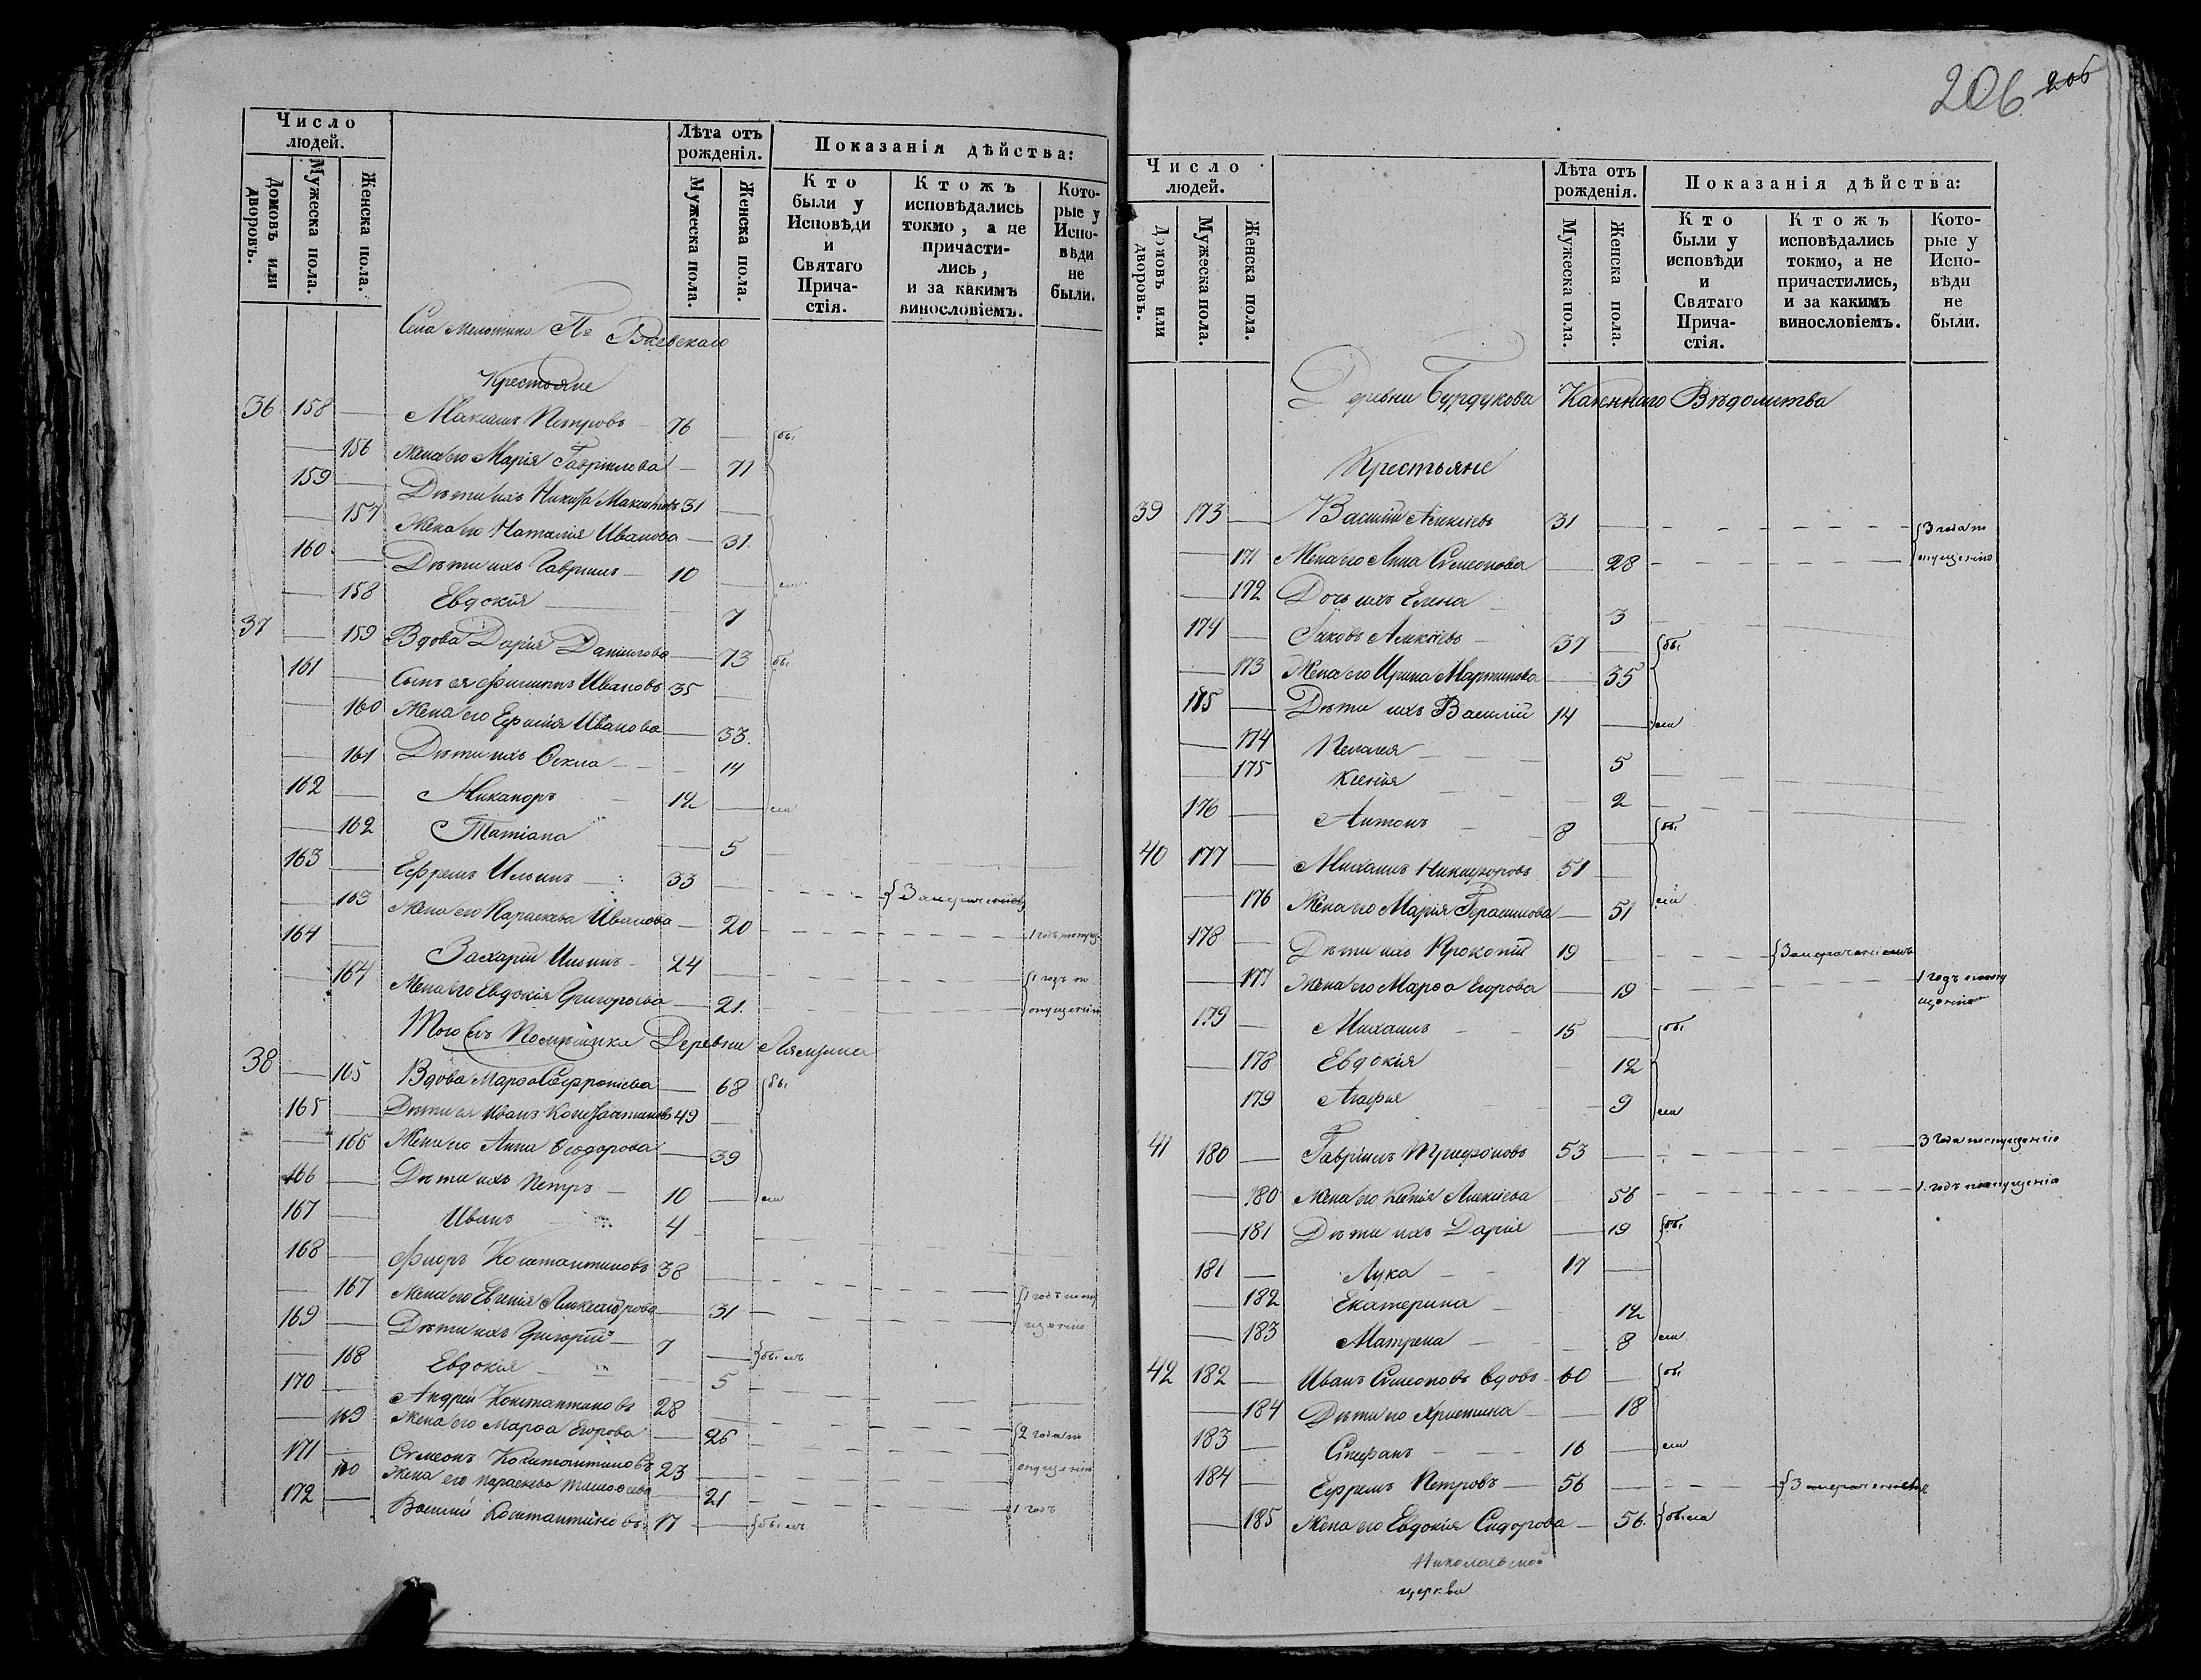 Число людей.
Домовъ или дворовъ.
Мужеска пола.
Женска пола.
Лѣта отъ рожденія.
Мужеска пола.
Женска пола.
Показанія дѣйства:
Кто были у Исповѣди и Святаго Прича-стія.
Ктожъ исповѣдались токмо, а не причасти-лись, и за какимъ винословіемъ.
Кото-рые у Испо-вѣди не были.
Села
Крестьяне
36 158 — Максимъ Петровъ 76 — {бы
— 156 Жена его Марія Гавріилова — 71
159 — Дѣти ихъ Никита Максимовъ 31 —
— 157 Жена его Наталія Иванова — 31.
160 — Дѣти ихъ Гавриилъ 10 — ли
— 158 Евдокія — 7
37 — 159 Вдова Дарія Данилова — 73 бы
161 — Сынъ ея Филиппъ Ивановъ 35 —
— 160 Жена его Ефимія Иванова — 33.
— 161 Дѣти ихъ Ѳекла — 14
162 — Никаноръ 12 — ли
— 162 Татіана — 5
163 — Ефремъ Ильинъ 33 — {За отлученіемъ
— 163 Жена его Параскева Иванова — 20
164 — Захарій Ильинъ 24 — {1 годъ по
— 164 Жена его Евдокія Григорьева — 21. опущенію
Того жъ Помѣщика Деревни
38 — 165 Вдова Марѳа Софроніева — 68 {бы
165 — Дѣти ея Иванъ Константиновъ 49 —
— 166 Жена его Анна Ѳеодорова — 39
166 — Дѣти ихъ Петръ 10 — ли
167 — Иванъ 4
168 — Флоръ Константиновъ 38 —
— 167 Жена его Евгенія Александрова — 31 — {1 годъ по опу
169 — Дѣти ихъ Григорій 7 — {былъ щенію
— 168 Евдокія — 5
170 — Андрей Константиновъ 28 —
— 169 Жена его Марѳа Егорова — 26 {2 года по
171 — Симеонъ Константиновъ 23 — опущенію
— 170 Жена его Параскева Тимоѳеева — 21
172 — Василій Константиновъ 17 — {былъ 1 годъ
206 206
Число людей.
Домовъ или дворовъ.
Мужеска пола.
Женска пола.
Лѣта отъ рожденія.
Мужеска пола.
Женска пола.
Показанія дѣйства:
Кто были у исповѣди и Святаго Прича-стія.
Ктожъ исповѣдались токмо, а не причастились, и за какимъ винословіемъ.
Кото-рые у Испо-вѣди не были.
Деревни Бурдукова Казеннаго Вѣдомства
Крестьяне
39 173 — Василій Алексіевъ 31 — {3 года по
— 171 Жена его Анна Симеонова — 28 опущенію
— 172 Дочь ихъ Елена 3
174 — Іаковъ Алексіевъ 37 — {бы
— 173 Жена его Ирина Мартинова — 35
175 — Дѣти ихъ Василій 14 — ли
— 174 Пелагея 5
— 175 Ксенія 2
176 — Антонъ 8 {бы
40 177 — Михаилъ Никифоровъ 51 —
— 176 Жена его Марія Герасимова — 51 ли
178 — Дѣти ихъ Прокопій 19 — {За отлученіемъ
— 177 Жена его Марѳа Егорова — 19 1 годъ по опу
щенію
179 — Михаилъ 15 — {бы
— 178 Евдокія — 12
— 179 Агафья — 9 ли
41 180 — Гавріилъ Трифоновъ 53 — 3 года по опущенію
— 180 Жена его Ксенія Алексіева — 56 1 годъ по опущенію
— 181 Дѣти ихъ Дарія — 19 {бы
181 — Лука 17 —
— 182 Екатерина — 12
— 183 Матрена — 8 ли
42 182 — Иванъ Симеоновъ вдовъ 60 — {бы
— 184 Дѣти его Христина — 18
183 — Стефанъ 16 — ли
184 — Ефремъ Петровъ 56 — {За отлученіемъ
— 185 Жена его Евдокія Сидорова — 56. {была
Никольской
церкви